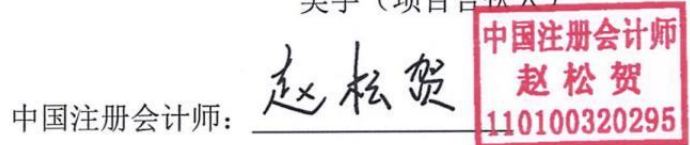 （项目合伙人）
中国注册会计师：赵松贺
中国注册会计师
赵松贺
110100320295